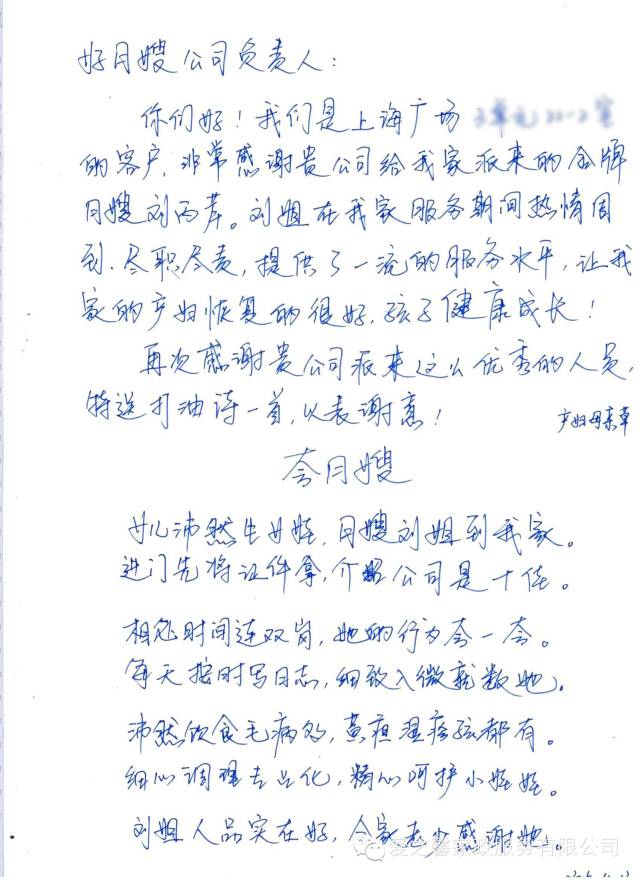 好月嫂公司负责人：
你们好！我们是上海广场
的客户，非常感谢贵公司给我家派来的金牌
月嫂刘丙芹。刘姐在我家服务期间热情周
到、尽职尽责，提供了一流的服务水平，让我
家的产妇恢复的很好，孩子健康成长！
再次感谢贵公司派来这么优秀的人员，
特送打油诗一首，以表谢意！
产妇母亲草
夸月嫂
女儿沛然生女娃，月嫂刘姐到我家。
进门先将证件拿，介绍公司是十佳。
相处时间连双岗，她的行为夸一夸。
每天按时写日志，细致入微就数她。
沛然饮食毛病多，黄疸湿疹孩都有。
细心调理去点化，精心呵护小娃娃。
刘姐人品实在好，合家老少感谢她。
爱之馨家政服务有限公司